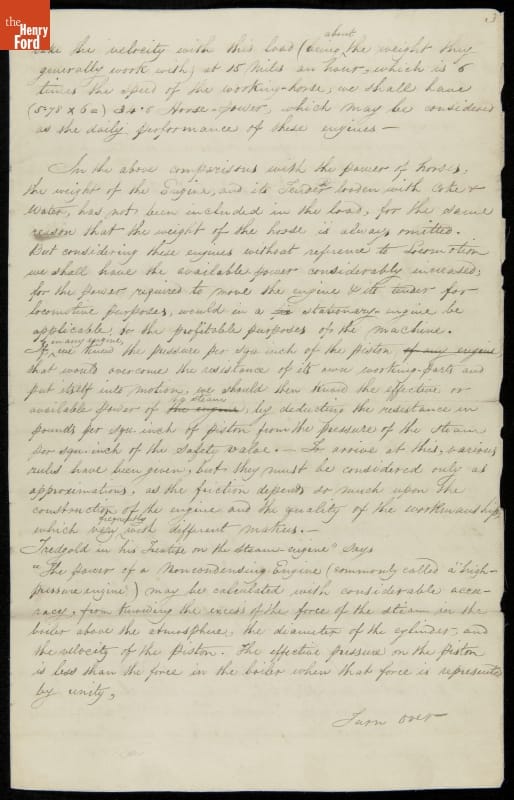 the Henry Ford
3
about
take the velocity with this load (being the weight they
generally work with) at 15 Miles an hour, which is 6
times the speed of the working-horse, we shall have
(5.78 x 6 =) 34.8 Horse-power, which may be considered
as the daily performance of these engines —
In the above comparisons with the power of horses,
the weight of the Engine, and its Tender loaden with Coke &
Water, has not been included in the load, for the same
reason that the weight of the horse is always omitted.
But considering these engines without reference to Locomotion
we shall have the available power considerably increased;
for the power required to move the engine & its tender for
locomotive purposes, would in a stationary engine be
applicable, for the profitable purposes of the machine.
in any engine,
If we knew the pressure per squ inch of the piston of any engine
that would overcome the resistance of its own working-parts and
put itself into motion, we should then know the effective or
by steam
available power of the engine, by deducting the resistance in
pounds per squ. inch of piston from the pressure of the steam
per squ. inch of the Safety Valve. — To arrive at this, various
rules have been given, but they must be considered only as
approximations, as the friction depends so much upon the
construction of the engine and the quality of the workmanship,
frequently
which very with different makers. —
Tredgold in his Treatise on the Steam-engine" says
"The power of a Noncondensing Engine (commonly called a "high-
pressure engine") may be calculated with considerable accu-
racy, from knowing the excess of the force of the steam in the
boiler above the atmosphere, the diameter of the cylinder, and
the velocity of the Piston. The effective pressure on the piston
is less than the force in the boiler when that force is represented
by unity,
Turn over